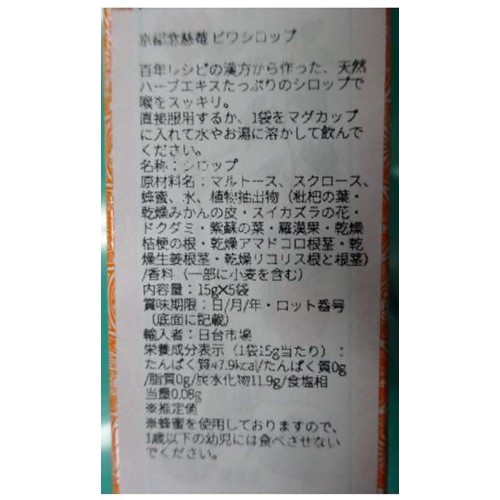 京都念慈菴 ビワシロップ
百年レシピの漢方から作った、天然
ハーブエキスたっぷりのシロップで
喉をスッキリ。
直接服用するか、1袋をマグカップ
に入れて水やお湯に溶かして飲んで
ください。
名称：シロップ
原材料名：マルトース、スクロース、
蜂蜜、水、植物抽出物（枇杷の葉・
乾燥みかんの皮・スイカズラの花・
ドクダミ・紫蘇の葉・羅漢果・乾燥
桔梗の根・乾燥アマドコロ根茎・乾
燥生姜根茎・乾燥リコリス根と根茎）
/香料（一部に小麦を含む）
内容量：15g×5袋
賞味期限：日/月/年・ロット番号
（底面に記載）
輸入者：日台市場
栄養成分表示（1袋15g当たり）：
たんぱく質47.9kcal/たんぱく質0g
/脂質0g/炭水化物11.9g/食塩相
当量0.08g
※推定値
※蜂蜜を使用しておりますので、
1歳以下の幼児には食べさせない
でください。